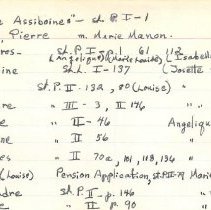 e Assiboines" - St. P. I - 1
, Pierre m. Marie Manon.
ros - St. P. I - p. 1 61 (12
(Angelique) (Marie Louise) (Isabell
ine St. L. I - 137 (Josette
St. P. II - 132, 80 (Louise)
re " III - 3, II 146 "
e " II - 46 Angeliqu
ine " II - 56
es " II 70a, 101, 118, 136 "
(Louise) Pension Application, St. P. II-19 Mari
dre St. P. II - p. 146 "
" II - p. 90 "